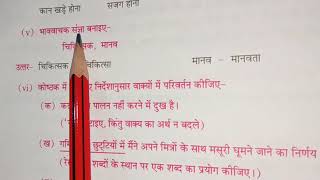 कान खड़े होना सजग होना
(v) भाववाचक संज्ञा बनाइए-
चिकित्सक, मानव
उत्तर- चिकित्सक चिकित्सा मानव - मानवता
(vi) कोष्ठक में निर्देशानुसार वाक्यों में परिवर्तन कीजिए-
(क) पालन नहीं करने में दुख है।
टाइए, किंतु वाक्य का अर्थ न बदले)
(ख) छुट्टियों में मैंने अपने मित्रों के साथ मसूरी घूमने जाने का निर्णय
शब्दों के स्थान पर एक शब्द का प्रयोग कीजिए।)